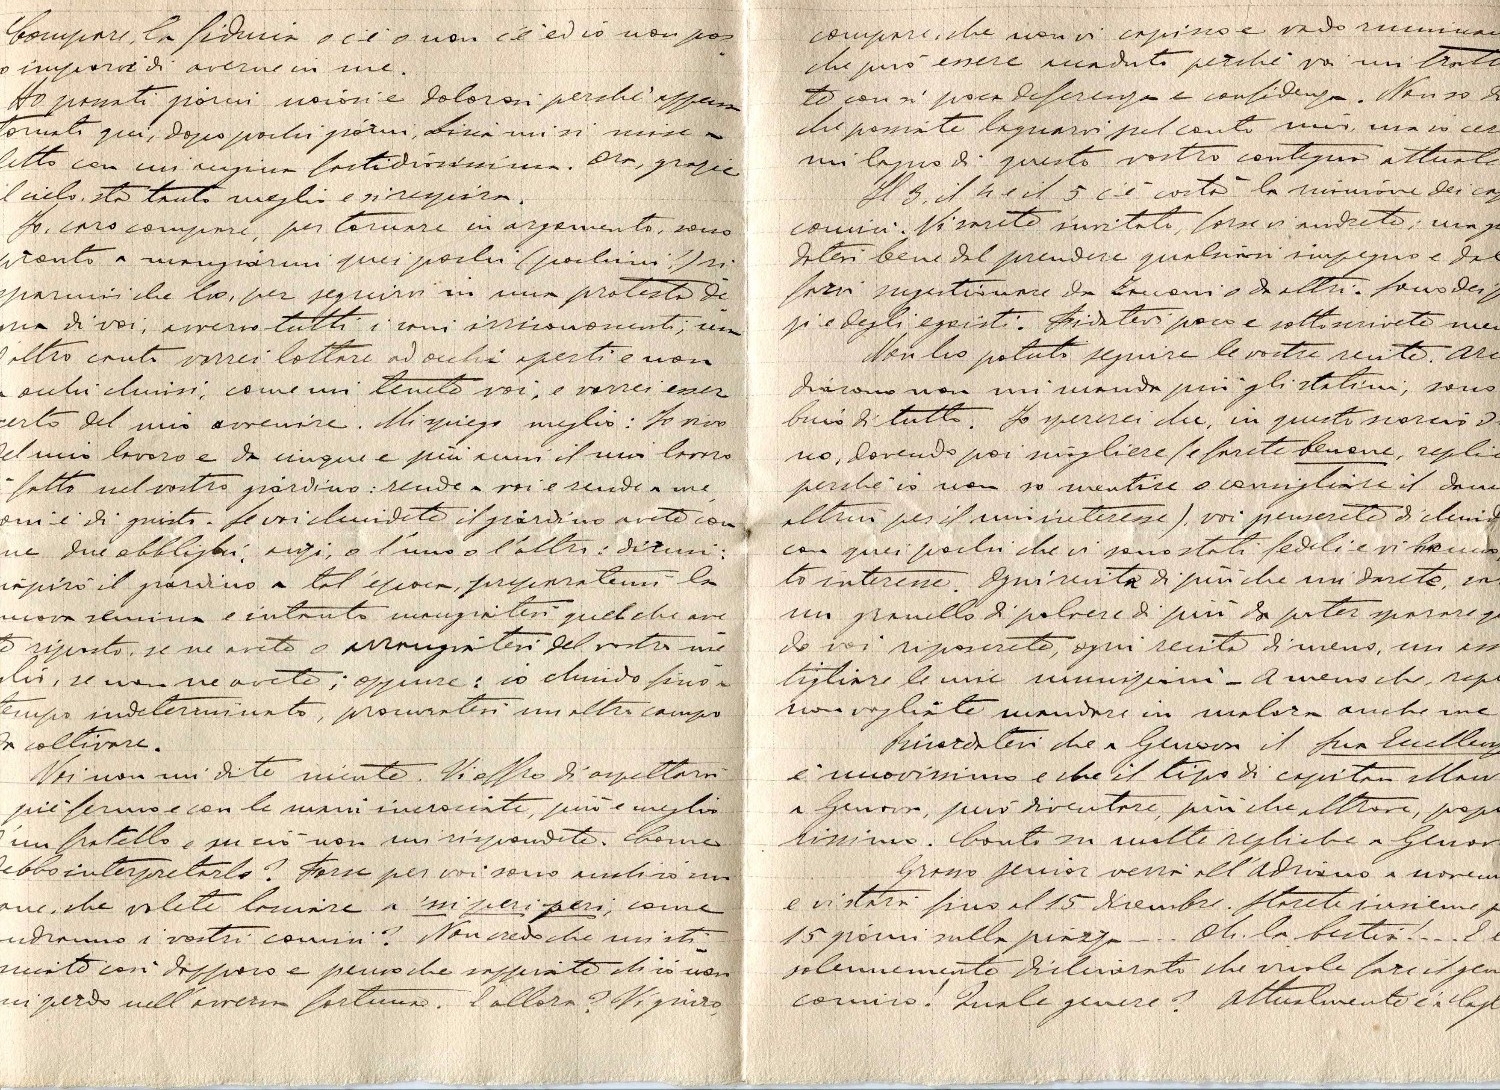 Compare, la fiducia o c'è o non c'è ed io non pos
o imporvi di averne in me.
Ho passati giorni noiosi e dolorosi perchè appena
tornati qui, dopo pochi giorni, mi si mise a
letto con un'angina fastidiosissima. Ora, grazie
il cielo, sta tanto meglio e si respira.
Io, caro compare, per tornare in argomento, sono
pronto a mangiarmi quei pochi (pochini!) ri
sparmi che ho, per seguirvi in una protesta de
gna di voi, avverso tutti i cani irriconoscenti; ma
d'altro canto vorrei lottare ad occhi aperti e non
a occhi chiusi, come mi tenete voi, e vorrei esser
certo del mio avvenire. Mi spiego meglio: Io vivo
del mio lavoro e da cinque e più anni il mio lavoro
è fatto nel vostro giardino: rende a voi e rende a me,
ed è di giusto. Se voi chiudete il giardino avete con
me due obblighi, anzi, o l'uno o l'altro: dirmi:
riapirò il giardino a tal epoca, preparatemi la
nuova semina e intanto mangiatevi quel che ave
te riposto, se ne avete o arrangiatevi del vostro me
glio, se non ne avete; oppure: io chiudo fino a
tempo indeterminato, procuratevi un altro campo
da coltivare.
Voi non mi dite niente. Vi offro di aspettarvi
piè fermo e con le mani incrociate, più e meglio
d'un fratello e su ciò non mi rispondete. Come
debbo interpretarlo? Forse per voi sono anch'io un
cane, che volete lasciare a , come
andranno i vostri comici? Non credo che mi sti
miate così dappoco e penso che sappiate ch'io non
mi perdo nell'avversa fortuna. E allora? Vi giuro,
compare, che non vi capisco e vado ruminan
che può essere accaduto perchè voi mi tratt
te con sì poca deferenza e confidenza. Non so di
che possiate lagnarvi pel conto mio, ma io cer
mi lagno di questo vostro contegno attuale
Il 3, il 4 e il 5 c'è costà la riunione dei cap
comici. Vi sarete invitato, forse vi andrete; ma g
datevi bene dal prendere qualsiasi impegno e dal
farvi suggestionare da Zacconi o da altri. Sono dei f
si e degli egoisti. Fidatevi poco e sottoscrivete men
Non ho potuto seguire le vostre recite. Arc
diacono non mi manda più gli statini, sono
buio di tutto. Io spererei che, in questo scorcio d'
no, dovendo poi sciogliere (e farete benone, replic
perchè io non so mentire o consigliare il dann
altrui per il mio interesse), voi penserete di chiud
con quei pochi che vi sono stati fedeli e vi hanno
to interesse. Ogni recita di più che mi darete, sa
un granello di polvere di più da poter sparare q
do voi riposerete, ogni recita di meno, un ass
tigliare le mie munizioni – A meno che, repl
non vogliate mandare in malora anche me
Ricordatevi che a Genova il sua Eccellenz
è nuovissimo e che il tipo di capitan
a Genova, può diventare, più che altrove, popo
rissimo. Conto su molte repliche a Genov
Grasso senior verrà all'Adriano a novem
e vi starà fino al 15 dicembre. Starete insieme p
15 giorni sulla piazza .... Oh la bestia! ... È e
solennemente dichiarato che vuole fare il gen
comico! Quale genere? Attualmente è a Cagl